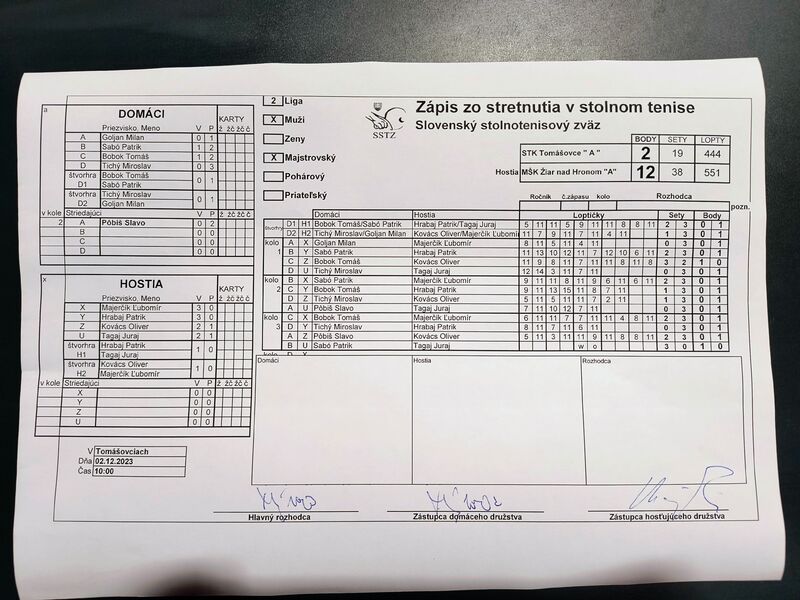 a
DOMÁCI
Priezvisko, Meno V P KARTY
ž žč žč č
A Goljan Milan 0 1
B Sabó Patrik 1 2
C Bobok Tomáš 1 2
D Tichý Miroslav 0 3
štvorhra D1 Bobok Tomáš 0 1
Sabó Patrik
štvorhra D2 Tichý Miroslav 0 1
Goljan Milan
v kole Striedajúci
2 A Pôbiš Slavo 0 2
B 0 0
C 0 0
D 0 0
x
HOSTIA
Priezvisko, Meno V P KARTY
ž žč žč č
X Majerčík Ľubomír 3 0
Y Hrabaj Patrik 3 0
Z Kovács Oliver 2 1
U Tagaj Juraj 2 1
štvorhra H1 Hrabaj Patrik 1 0
Tagaj Juraj
štvorhra H2 Kovács Oliver 1 0
Majerčík Ľubomír
v kole Striedajúci
X 0 0
Y 0 0
Z 0 0
U 0 0
V Tomášovciach
Dňa 02.12.2023
Čas 10:00
2 Liga
X Muži
Ženy
X Majstrovský
Pohárový
Priateľský
SSTZ
Zápis zo stretnutia v stolnom tenise
Slovenský stolnotenisový zväz
BODY SETY LOPTY
STK Tomášovce "A" 2 19 444
Hostia MŠK Žiar nad Hronom "A" 12 38 551
Ročník č.zápasu kolo Rozhodca
pozn.
Domáci Hostia Loptičky Sety Body
štvorhry D1 H1 Bobok Tomáš/Sabó Patrik Hrabaj Patrik/Tagaj Juraj 5 11 11 5 9 11 11 8 8 11 2 3 0 1
D2 H2 Tichý Miroslav/Goljan Milan Kovács Oliver/Majerčík Ľubomír 11 7 9 11 7 11 4 11 1 3 0 1
kolo 1 A X Goljan Milan Majerčík Ľubomír 8 11 5 11 4 11 0 3 0 1
B Y Sabó Patrik Hrabaj Patrik 11 13 10 12 11 7 12 10 6 11 2 3 0 1
C Z Bobok Tomáš Kovács Oliver 11 9 8 11 7 11 11 8 11 8 3 2 1 0
D U Tichý Miroslav Tagaj Juraj 12 14 3 11 7 11 0 3 0 1
kolo 2 B X Sabó Patrik Majerčík Ľubomír 9 11 11 8 11 9 6 11 6 11 2 3 0 1
C Y Bobok Tomáš Hrabaj Patrik 9 11 13 15 11 8 7 11 1 3 0 1
D Z Tichý Miroslav Kovács Oliver 5 11 5 11 11 7 2 11 1 3 0 1
A U Pôbiš Slavo Tagaj Juraj 7 11 10 12 7 11 0 3 0 1
kolo 3 C X Bobok Tomáš Majerčík Ľubomír 6 11 11 7 7 11 11 4 8 11 2 3 0 1
D Y Tichý Miroslav Hrabaj Patrik 6 11 4 11 6 11 0 3 0 1
A Z Pôbiš Slavo Kovács Oliver 5 11 3 11 11 9 11 8 9 11 2 3 0 1
B U Sabó Patrik Tagaj Juraj w o 3 0 1 0
kolo D X
Domáci Hostia Rozhodca
Hlavný rozhodca Zástupca domáceho družstva Zástupca hosťujúceho družstva